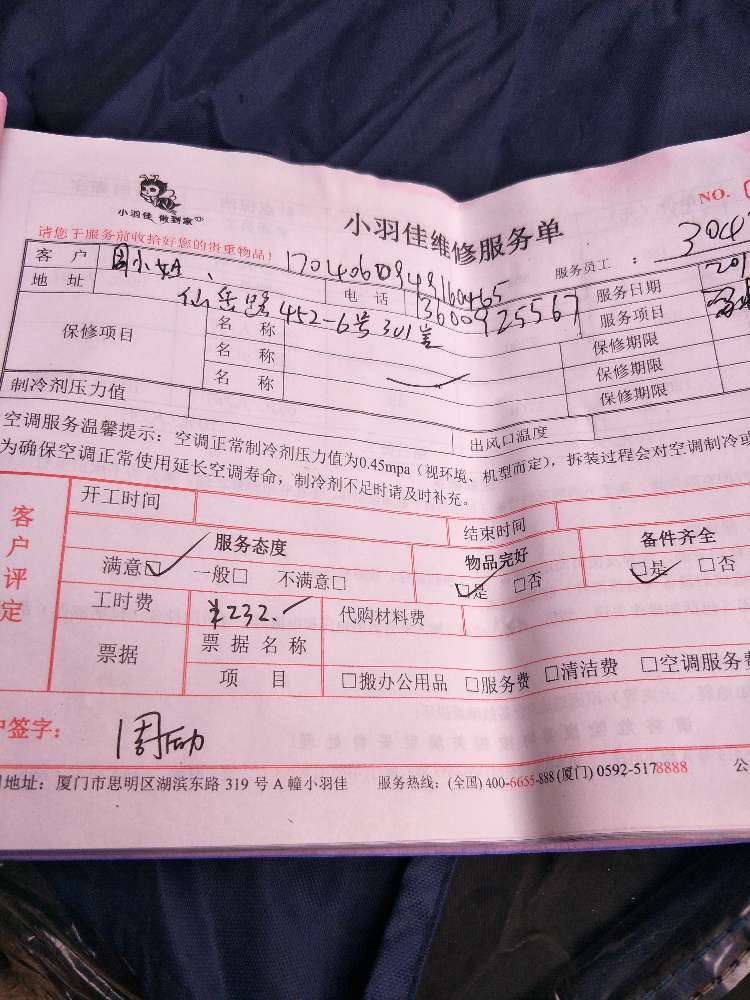 小羽佳 做到家
NO.
小羽佳维修服务单
请您于服务前收拾好您的贵重物品!
服务员工 : 304
客户 周小姐、 17040609849160465
地址 仙岳路452-6号301室 电话 13600925567 服务日期 201
服务项目
保修项目 名称 保修期限
名称 保修期限
名称 保修期限
制冷剂压力值 出风口温度
空调服务温馨提示：空调正常制冷剂压力值为0.45mpa（视环境、机型而定），拆装过程会对空调制冷或
为确保空调正常使用延长空调寿命，制冷剂不足时请及时补充。
客户评定
开工时间 结束时间
服务态度 物品完好 备件齐全
满意☑ 一般□ 不满意□ ☑是 □否 ☑是 □否
工时费 ¥232. 代购材料费
票据 票据名称
项目 □搬办公用品 □服务费 □清洁费 □空调服务费
户签字：
地址：厦门市思明区湖滨东路 319 号 A 幢小羽佳 服务热线：(全国) 400-6655-888 (厦门) 0592-5178888 公